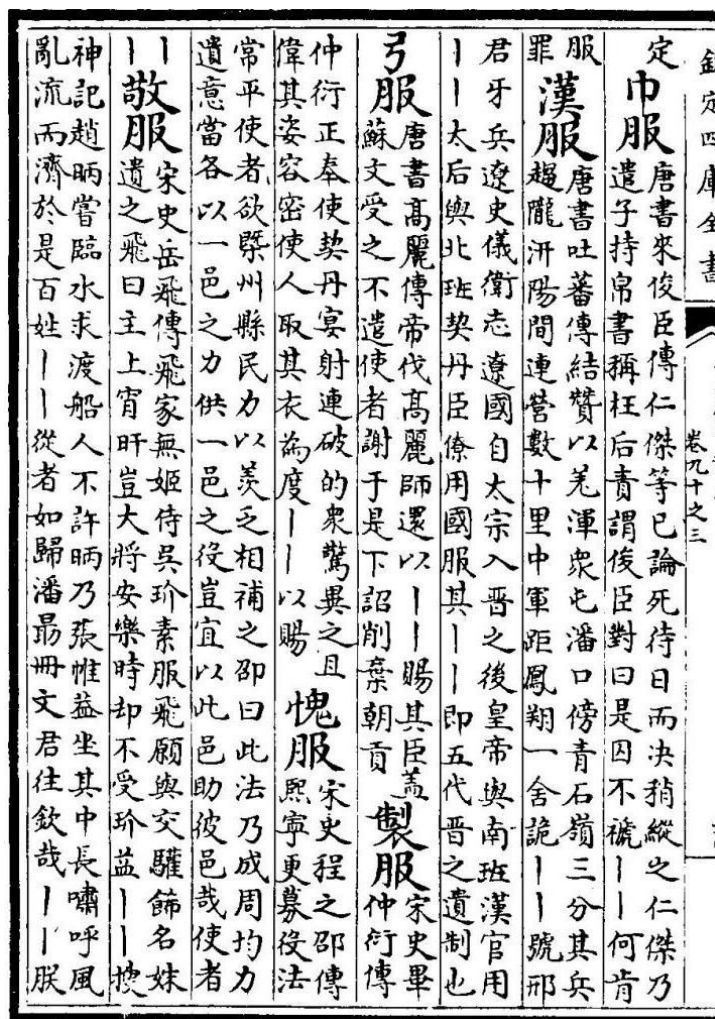 欽定四庫全書
卷九十之三
定
巾服
唐書來俊臣傳仁傑等已論死待日而決稍縱之仁傑乃
遣子持帛書稱枉后責謂俊臣對曰是囚不褫丨丨何肯
服
罪
漢服
唐書吐蕃傳結贊以羌渾衆屯潘口傍青石嶺三分其兵
趨隴汧陽間連營數十里中軍距鳳翔一舍詭丨丨號邢
君牙兵遼史儀衛志遼國自太宗入晋之後皇帝與南班漢官用
丨丨太后與北班契丹臣僚用國服其丨丨即五代晋之遺制也
弓服
唐書高麗傳帝伐高麗師還以丨丨賜其臣蓋
蘇文受之不遣使者謝于是下詔削棄朝貢
製服
宋史畢
仲衍傳
仲衍正奉使契丹宴射連破的衆驚異之且
偉其姿容密使人取其衣為度丨丨以賜
愧服
宋史程之邵傳
熙寧更募役法
常平使者欲槩州縣民力以羨乏相補之邵曰此法乃成周均力
遺意當各以一邑之力供一邑之役豈宜以此邑助彼邑哉使者
丨
丨
敬服
宋史岳飛傳飛家無姬侍吳玠素服飛願與交驩飾名姝
遺之飛曰主上宵旰豈大將安樂時却不受玠益丨丨搜
神記趙昞嘗臨水求渡船人不許昞乃張帷蓋坐其中長嘯呼風
亂流而濟於是百姓丨丨從者如歸潘朂冊文君往欽哉丨丨朕